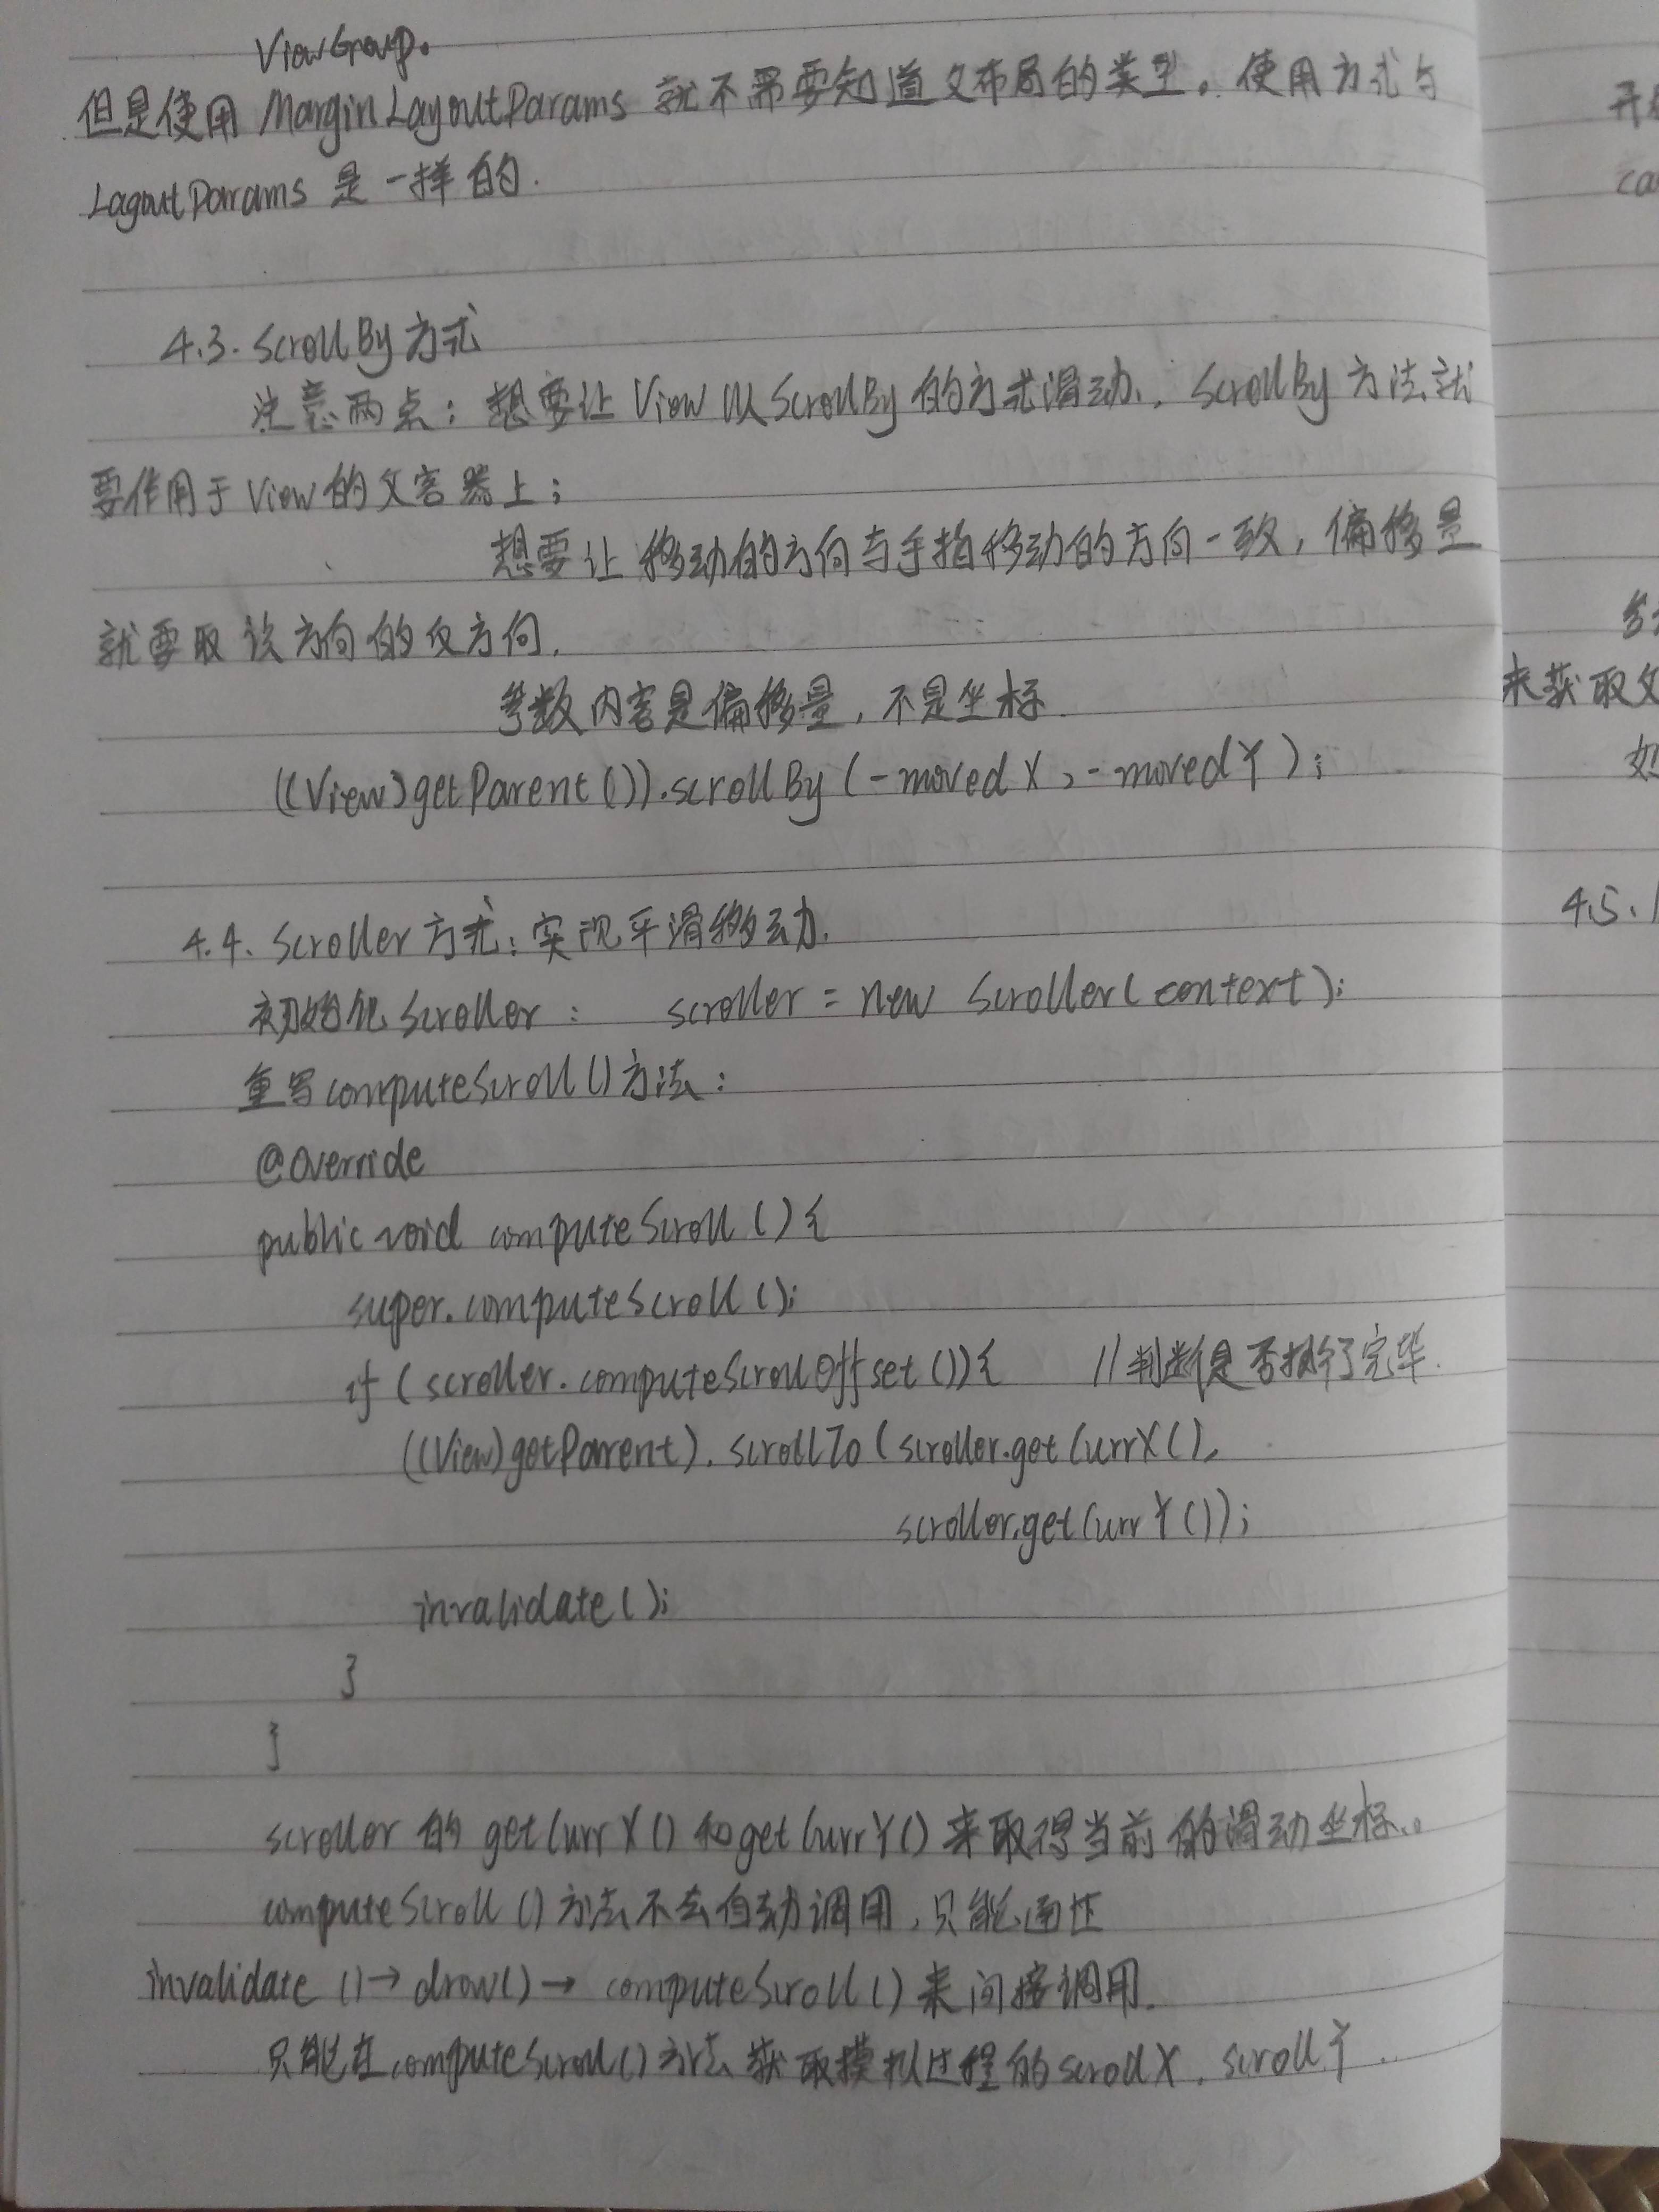 ViewGroup.
但是使用 MarginLayoutParams 就不需要知道父布局的类型。使用方式与
LayoutParams 是一样的.
4.3. ScrollBy方式
注意两点：想要让View以ScrollBy的方式滑动，ScrollBy方法就
要作用于View的父容器上；
想要让移动的方向与手指移动的方向一致，偏移量
就要取该方向的反方向.
参数内容是偏移量，不是坐标.
((View)getParent()).scrollBy(-movedX,-movedY);
4.4. Scroller方式：实现平滑移动.
初始化Scroller： scroller = new Scroller(context);
重写computeScroll()方法：
@Override
public void computeScroll(){
super.computeScroll();
if(scroller.computeScrollOffset()){ //判断是否执行完毕.
((View)getParent).scrollTo(scroller.getCurrX(),
scroller.getCurrY());
invalidate();
}
}
scroller的getCurrX()和getCurrY()来取得当前的滑动坐标.。
computeScroll()方法不会自动调用，只能通过
invalidate()→draw()→computeScroll()来间接调用.
只能在computeScroll()方法获取模拟过程的scrollX, scrollY.
开
ca
来获取父
如
4.5.